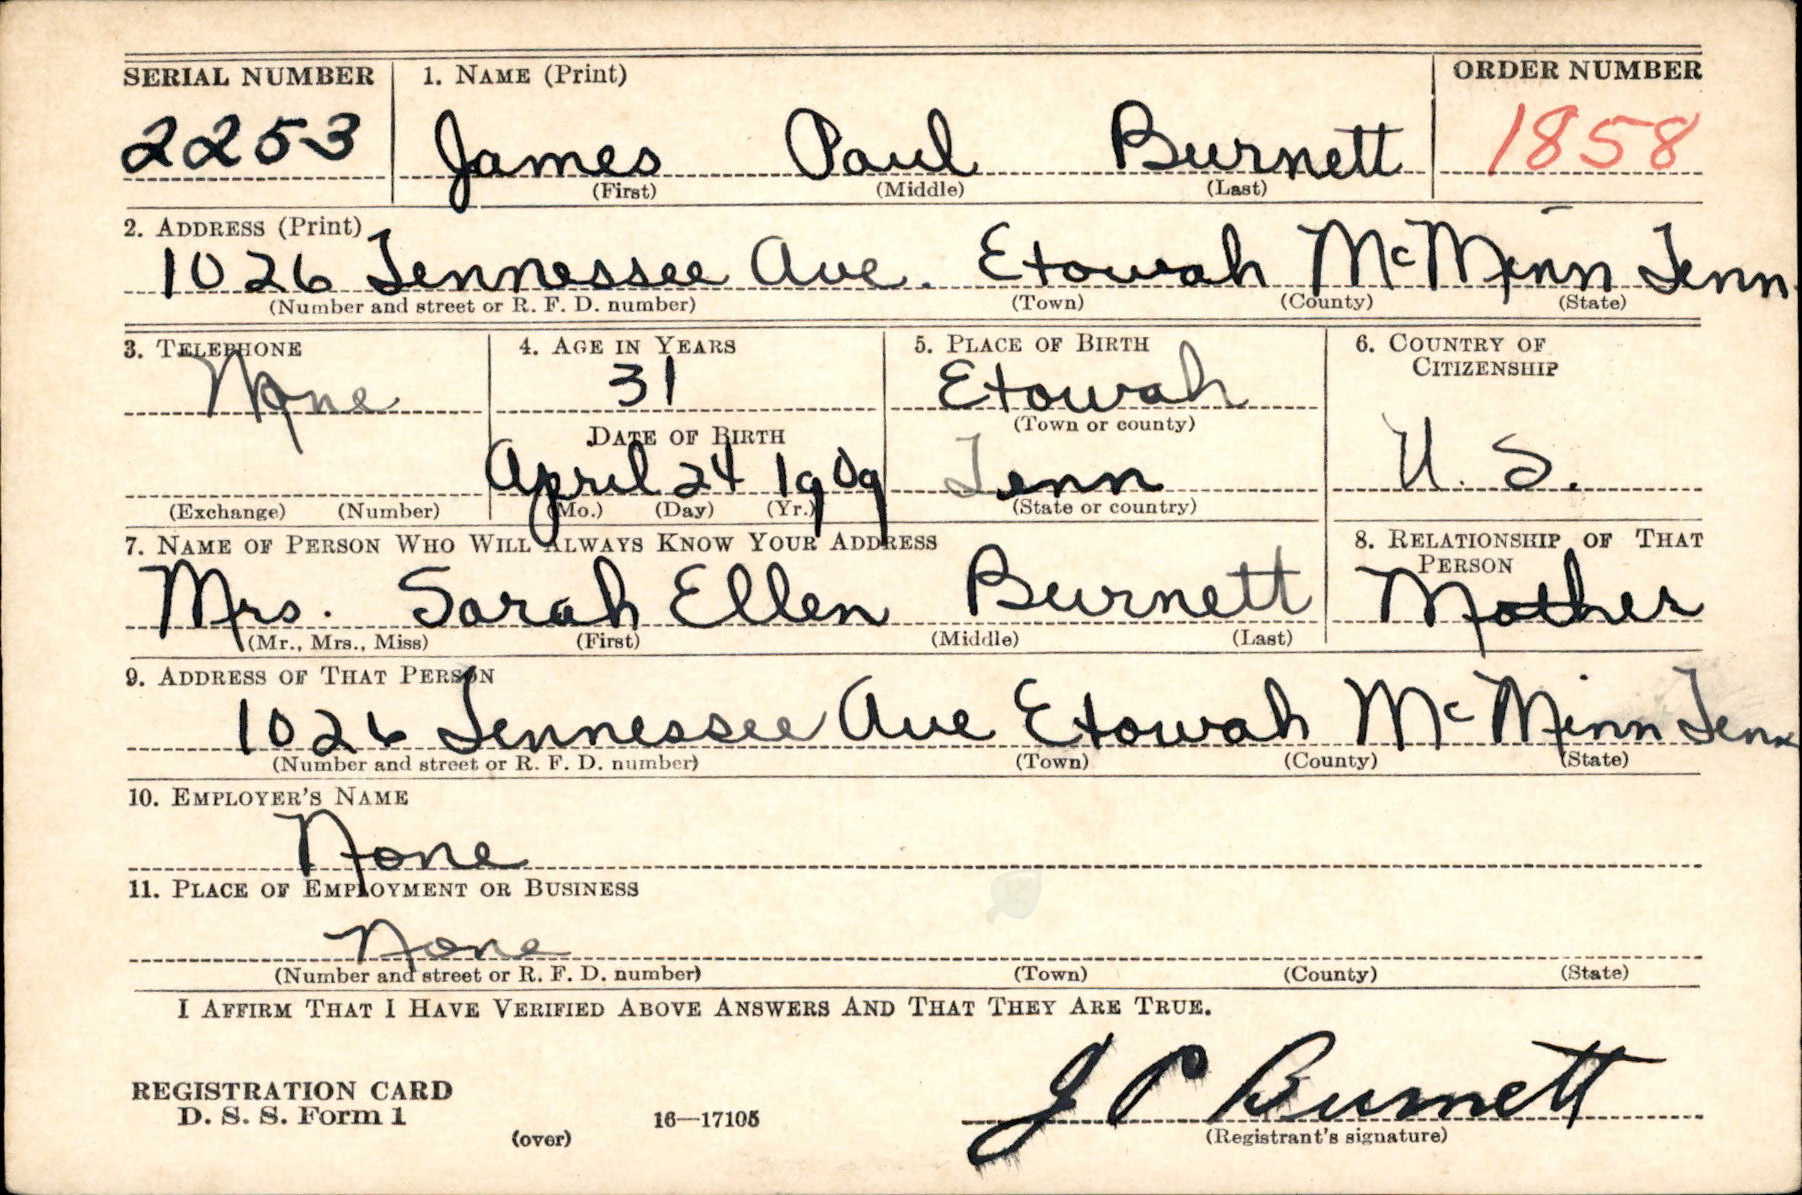 SERIAL NUMBER 1. NAME (Print) ORDER NUMBER
2253 James Paul Burnett 1858
(First) (Middle) (Last)
2. ADDRESS (Print)
1026 Tennessee Ave. Etowah McMinn Tenn.
(Number and street or R. F. D. number) (Town) (County) (State)
3. TELEPHONE 4. AGE IN YEARS 5. PLACE OF BIRTH 6. COUNTRY OF CITIZENSHIP
None 31 Etowah
(Town or county)
DATE OF BIRTH
April 24 1909 Tenn U. S.
(Exchange) (Number) (Mo.) (Day) (Yr.) (State or country)
7. NAME OF PERSON WHO WILL ALWAYS KNOW YOUR ADDRESS 8. RELATIONSHIP OF THAT PERSON
Mrs. Sarah Ellen Burnett Mother
(Mr., Mrs., Miss) (First) (Middle) (Last)
9. ADDRESS OF THAT PERSON
1026 Tennessee Ave Etowah McMinn Tenn
(Number and street or R. F. D. number) (Town) (County) (State)
10. EMPLOYER'S NAME
None
11. PLACE OF EMPLOYMENT OR BUSINESS
None
(Number and street or R. F. D. number) (Town) (County) (State)
I AFFIRM THAT I HAVE VERIFIED ABOVE ANSWERS AND THAT THEY ARE TRUE.
J P Burnett
REGISTRATION CARD
D. S. S. Form 1 16—17105
(over) (Registrant's signature)